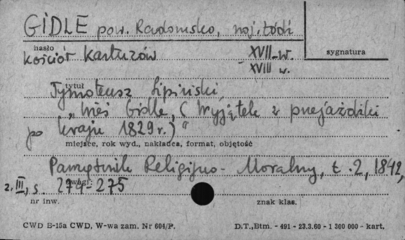 GIDLE pow. Radomsko, woj. Łódź
hasło
kościół kartuzów XVII-w.
XVIII w.
sygnatura
tytuł
Tymoteusz Lipiński,
"Wieś Gidle, (Wyjątek z przejażdżki
po kraju 1829 r.)"
miejsce, rok wyd., nakładca, format, objętość
Pamiętnik Religijno-Moralny, t. 2, 1842,
z. III, s. 274-275
nr inw. znak klas.
CWD B-15a CWD, W-wa zam. Nr 604/P. D.T.,Btm. - 491 - 23.3.60 - 1 300 000 - kart.